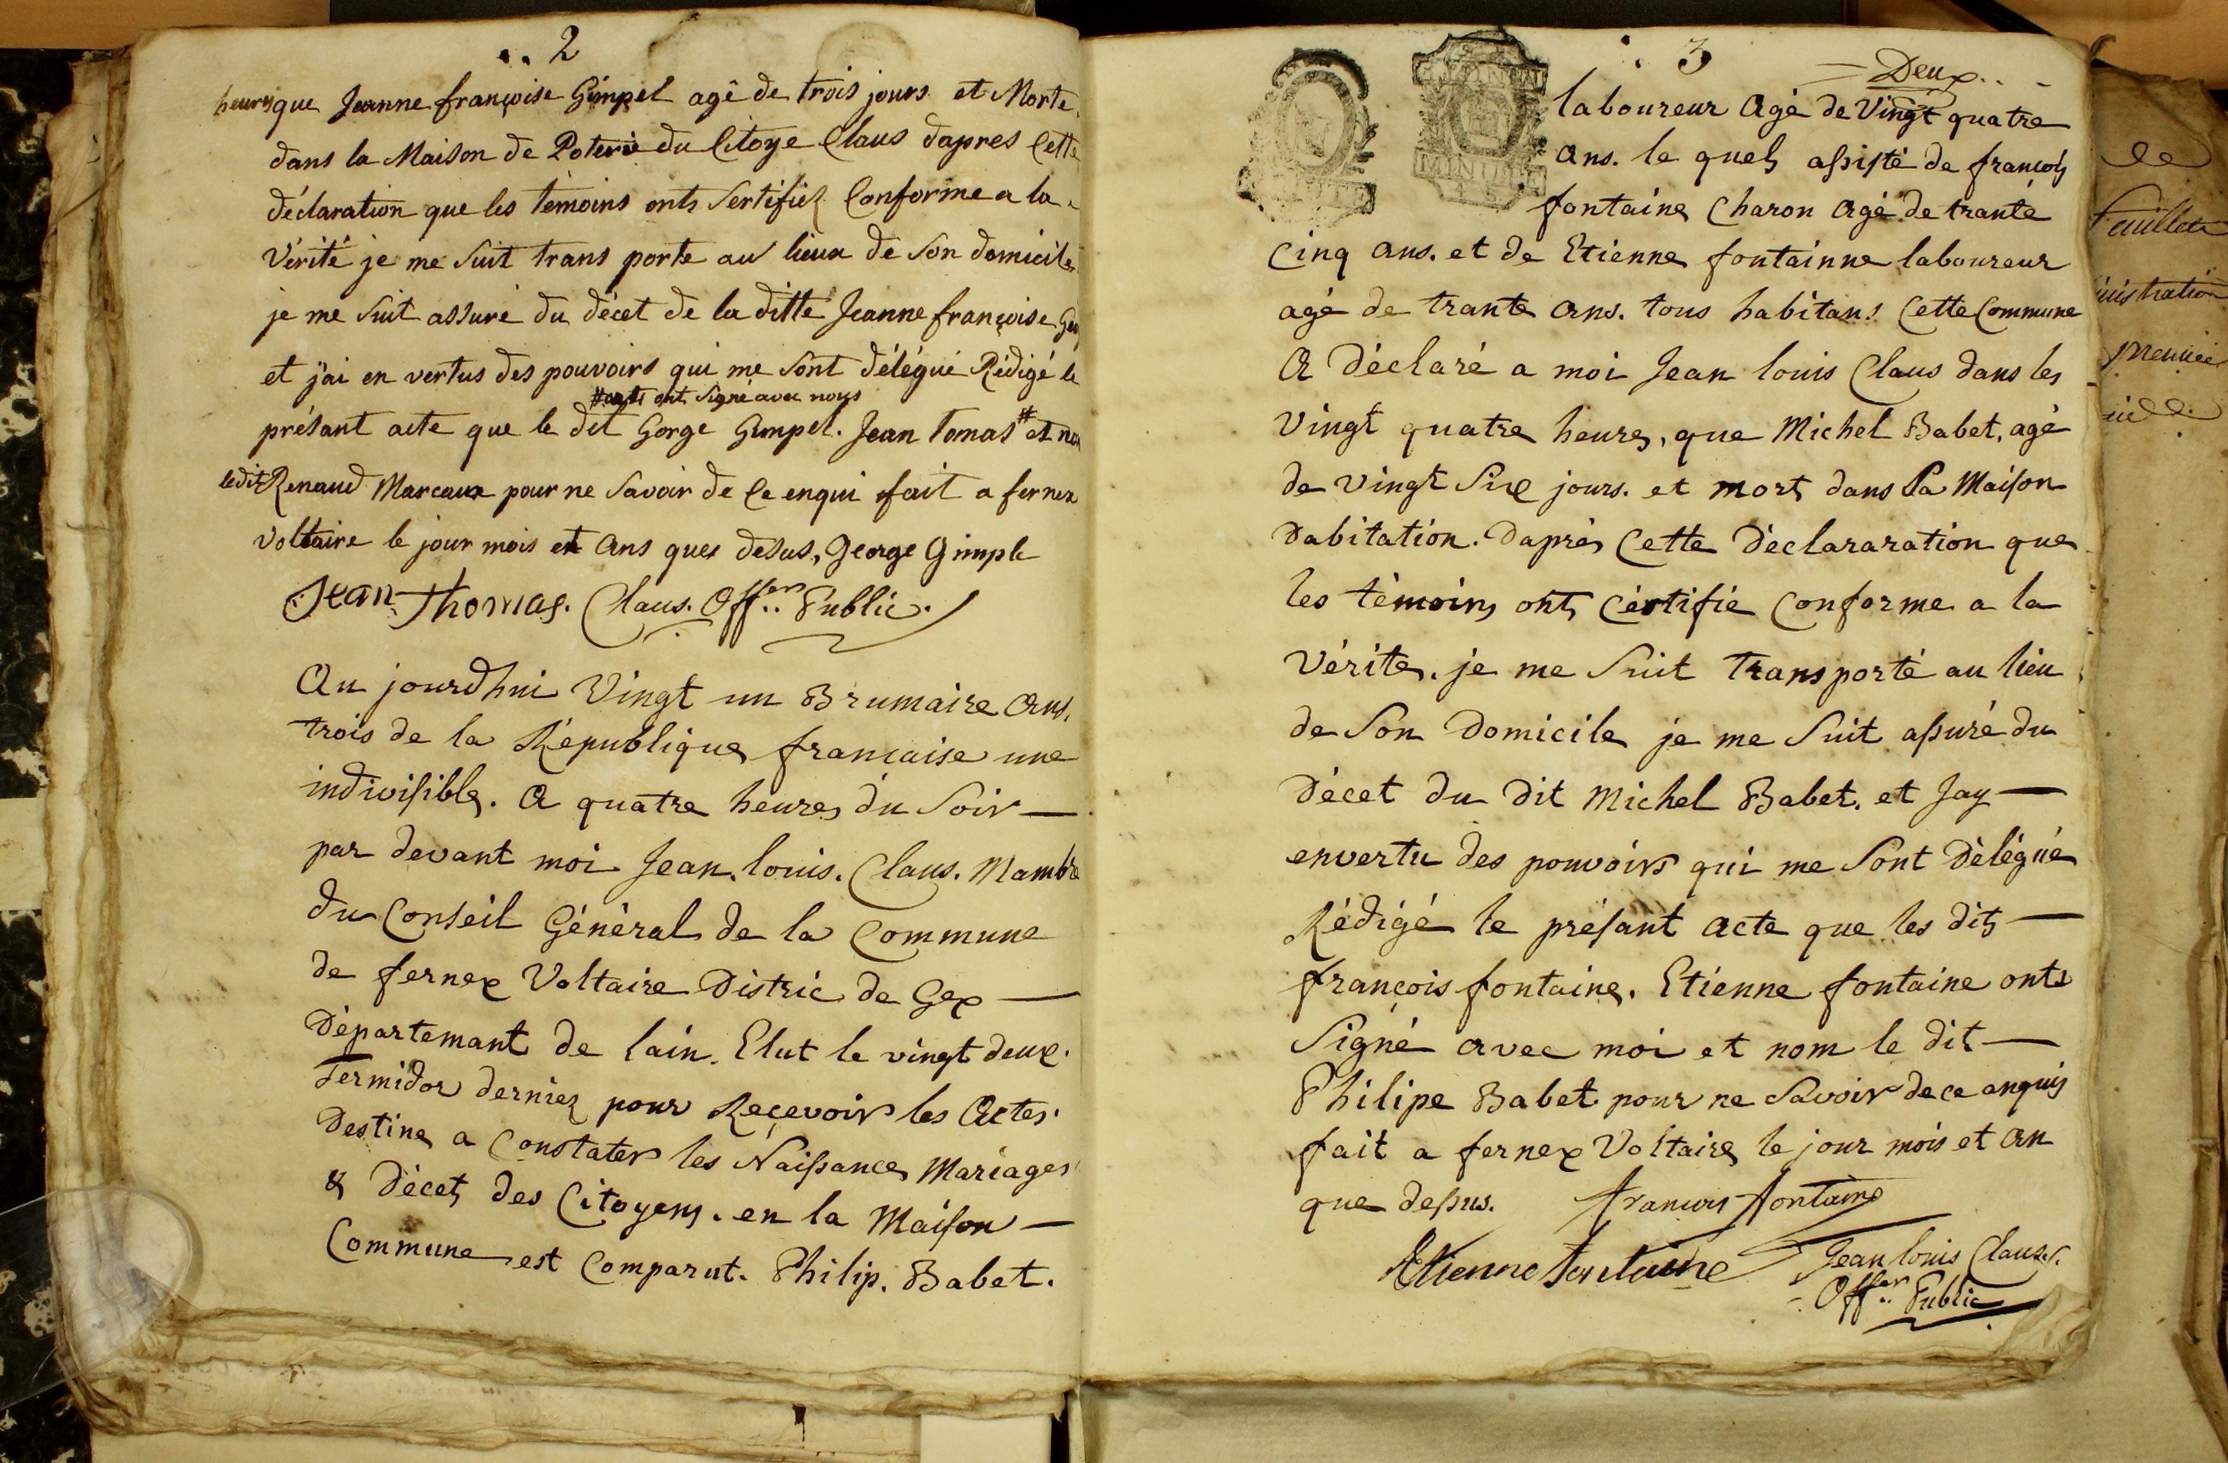 2
heures que Jeanne françoise Gimpel agê de trois jours et Morte
dans la Maison de Poterie du Citoye Claus dapres Cette
déclaration que les témoins onts Sertifiez Conforme a la
Vérité je me Suit trans porte au lieux de Son domicile
je me Suit assuré du décet de la ditte Jeanne françoise
et j'ai en vertus des pouvoirs qui me Sont délégué Rédigé le
# ont Signé avec nous
présant acte que le dit Gorge Gimpel. Jean Tomas # et non
ledit Renaud Marceaux pour ne Savoir de Ce enqui fait a fernex
Voltaire le jour mois et ans ques desus, George Gimple
Jean Thomas. Claus. Offer Public.
Au jourdhui Vingt un Brumaire ans.
trois de la République francaise une
indivisible. A quatre heures du Soir —
par devant moi Jean. louis. Claus. Mambre
du Conseil Général de la Commune
de fernex Voltaire Distric de Gex —
Département de lain. Elut le vingt deux.
Termidor dernier pour Reçevoir les Actes
Destine a Constater les Naissances Mariages
& décet des Citoyens. en la Maison —
Commune est Comparut. Philip. Babet.
3
Deux
MINUTE
laboureur Agé de Vingt quatre
Ans. le quel assisté de françois
fontaine Charon Agé de trante
Cinq Ans. et de Etienne fontainne laboureur
agé de trante Ans. tous habitans Cette Commune
A Déclaré a moi Jean louis Claus dans les
Vingt quatre heures, que Michel Babet, agé
de Vingt Six jours. et mort dans la Maison
Dabitation. Daprés Cette Déclararation que
les témoins ont Cértifie Conforme a la
Vérite. je me Suit Transporté au lieu
de Son Domicile je me Suit assuré du
Décet du Dit Michel Babet. et Jay —
envertu des pouvoirs qui me Sont Délégué
Rédigé le présant Acte que les dits —
françois fontaine. Etienne fontaine onts
Signé avec moi et nom le dit —
Philipe Babet pour ne Savoir de ce anquis
fait a fernex Voltaire le jour mois et an
que dessus. francois fontaine
Etienne fontaine Jean louis Claus.
Offer Public